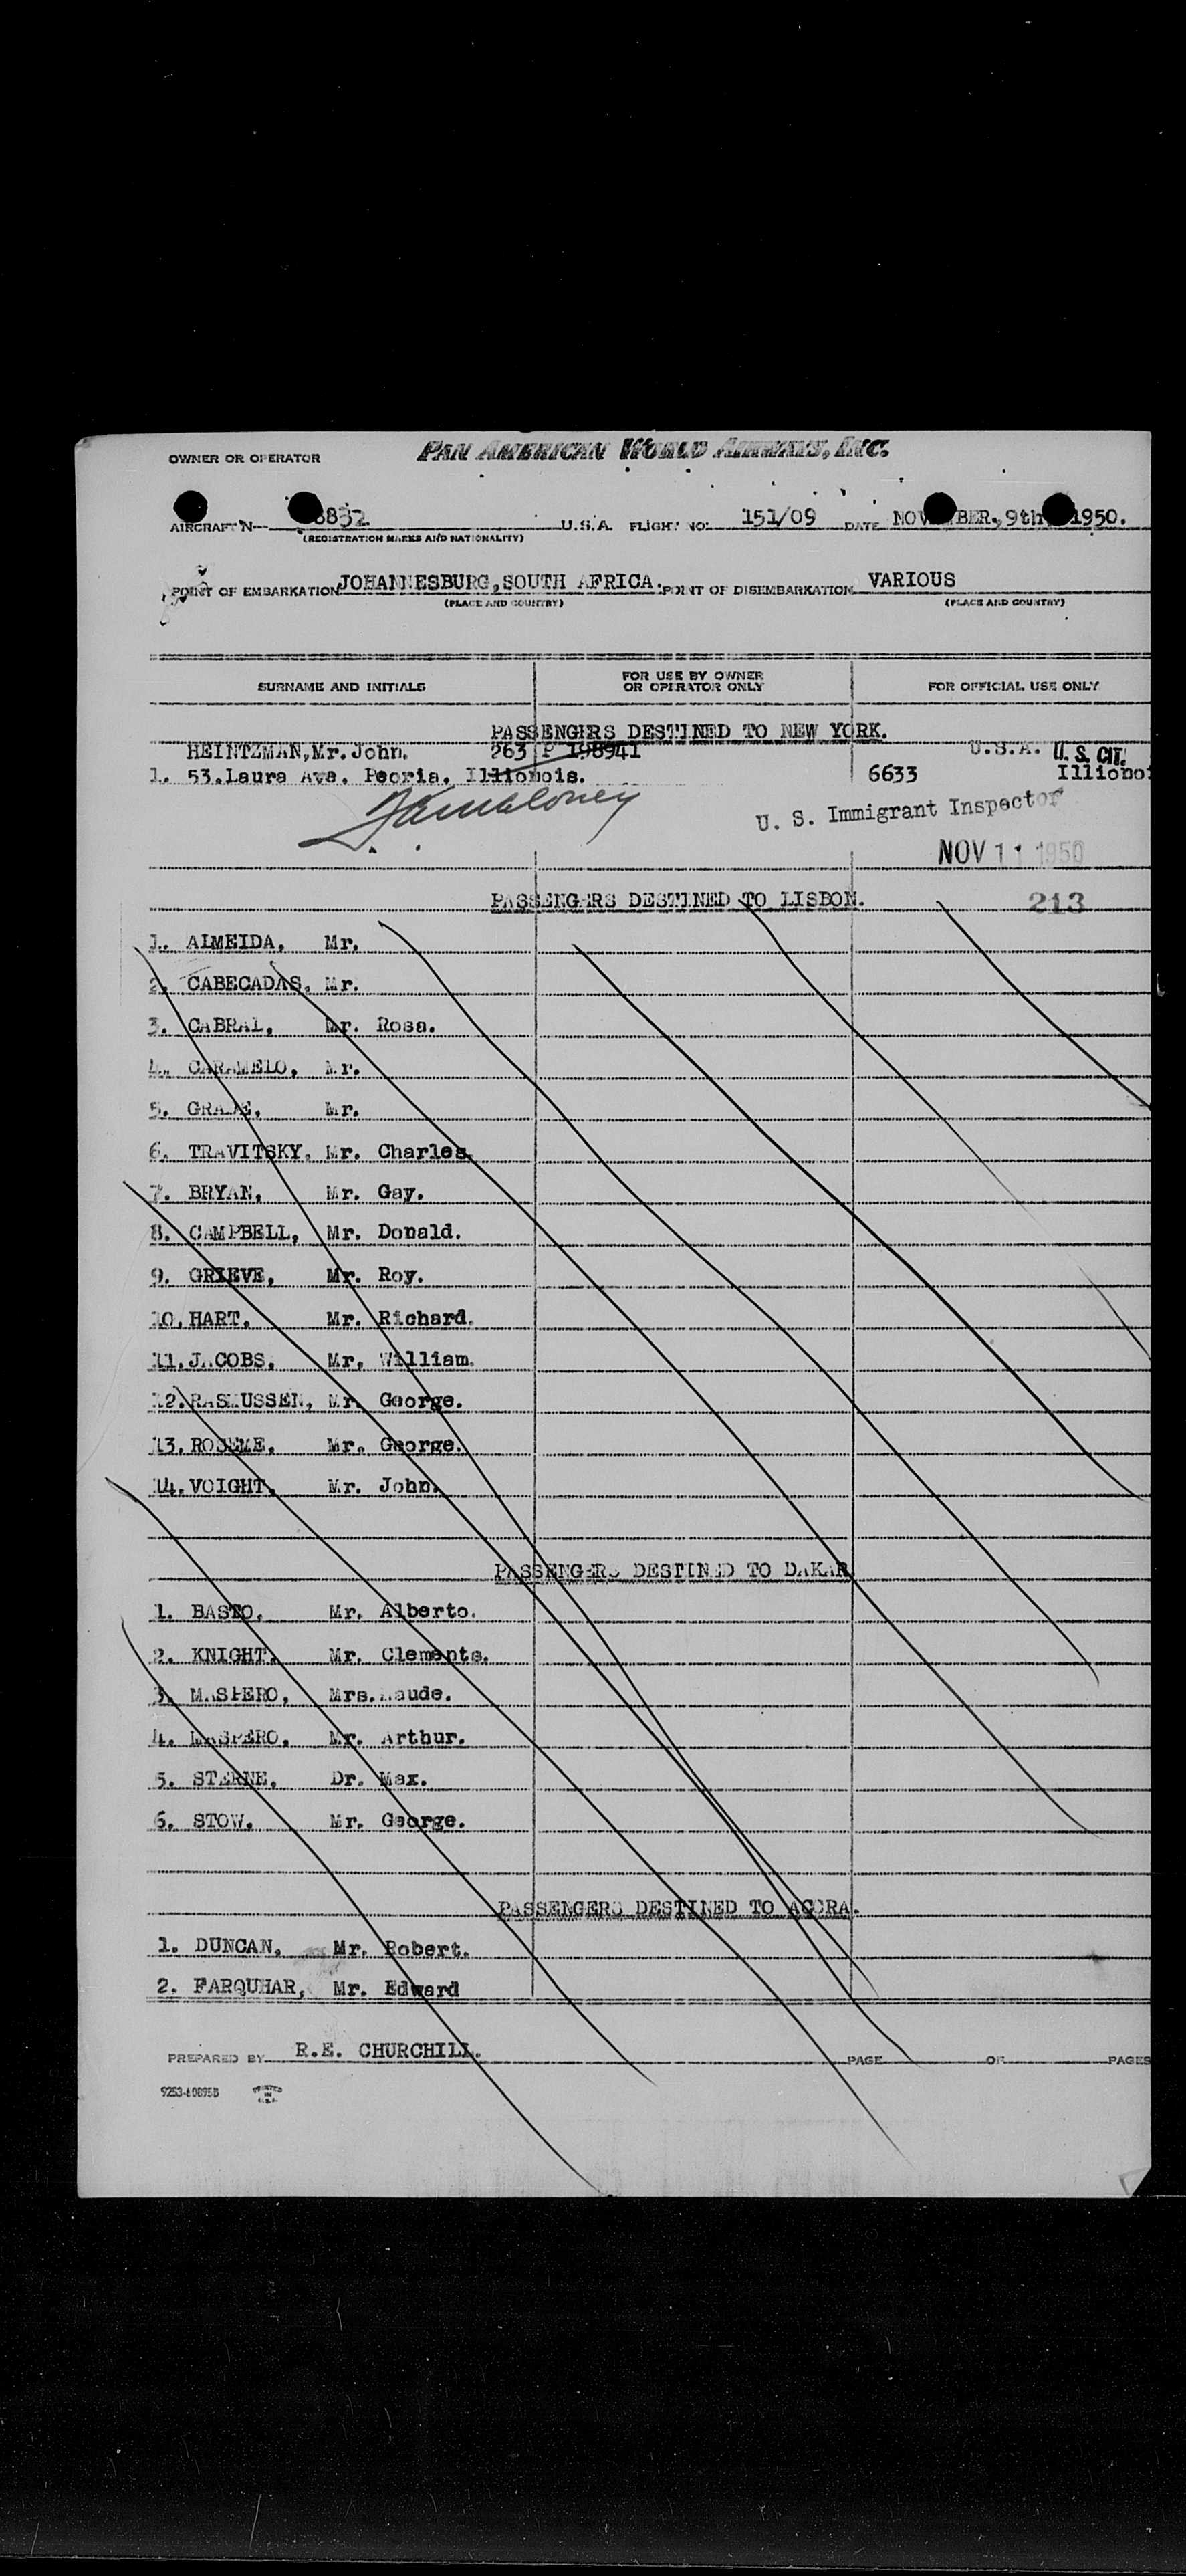 OWNER OR OPERATOR PAN AMERICAN WORLD AIRWAYS, INC.
AIRCRAFT N--- 8832 U.S.A. FLIGHT NO. 151/09 DATE NOV BER, 9th 1950.
(REGISTRATION MARKS AND NATIONALITY)
POINT OF EMBARKATION JOHANNESBURG, SOUTH AFRICA. POINT OF DISEMBARKATION VARIOUS
(PLACE AND COUNTRY) (PLACE AND COUNTRY)
SURNAME AND INITIALS FOR USE BY OWNER OR OPERATOR ONLY FOR OFFICIAL USE ONLY
PASSENGERS DESTINED TO NEW YORK.
HEINTZMAN, Mr. John. 263 P 198941 U.S.A. U.S. CIT.
1. 53. Laura Ave. Peoria. Illionois. 6633 Illiono
U. S. Immigrant Inspector
NOV 11 1950
PASSENGERS DESTINED TO LISBON. 213
1. ALMEIDA, Mr.
2. CABECADAS, Mr.
3. CABRAL, Mr. Rosa.
4. CARAMELO, Mr.
5. Mr.
6. TRAVITSKY, Mr. Charles.
7. BRYAN, Mr. Gay.
8. CAMPBELL, Mr. Donald.
9. GRIEVE, Mr. Roy.
10. HART, Mr. Richard.
11. JACOBS, Mr. William.
12. RASMUSSEN, Mr. George.
13. Mr. George.
14. VOIGHT, Mr. John.
PASSENGERS DESTINED TO DAKAR
1. BASTO, Mr. Alberto.
2. KNIGHT, Mr. Clements.
3. MASPERO, Mrs. Maude.
4. MASPERO, Mr. Arthur.
5. STERNE, Dr. Max.
6. STOW, Mr. George.
PASSENGERS DESTINED TO ACCRA.
1. DUNCAN, Mr. Robert.
2. FARQUHAR, Mr. Edward
PREPARED BY R.E. CHURCHILL. PAGE OF PAGES
9253-60895B PRINTED IN U.S.A.